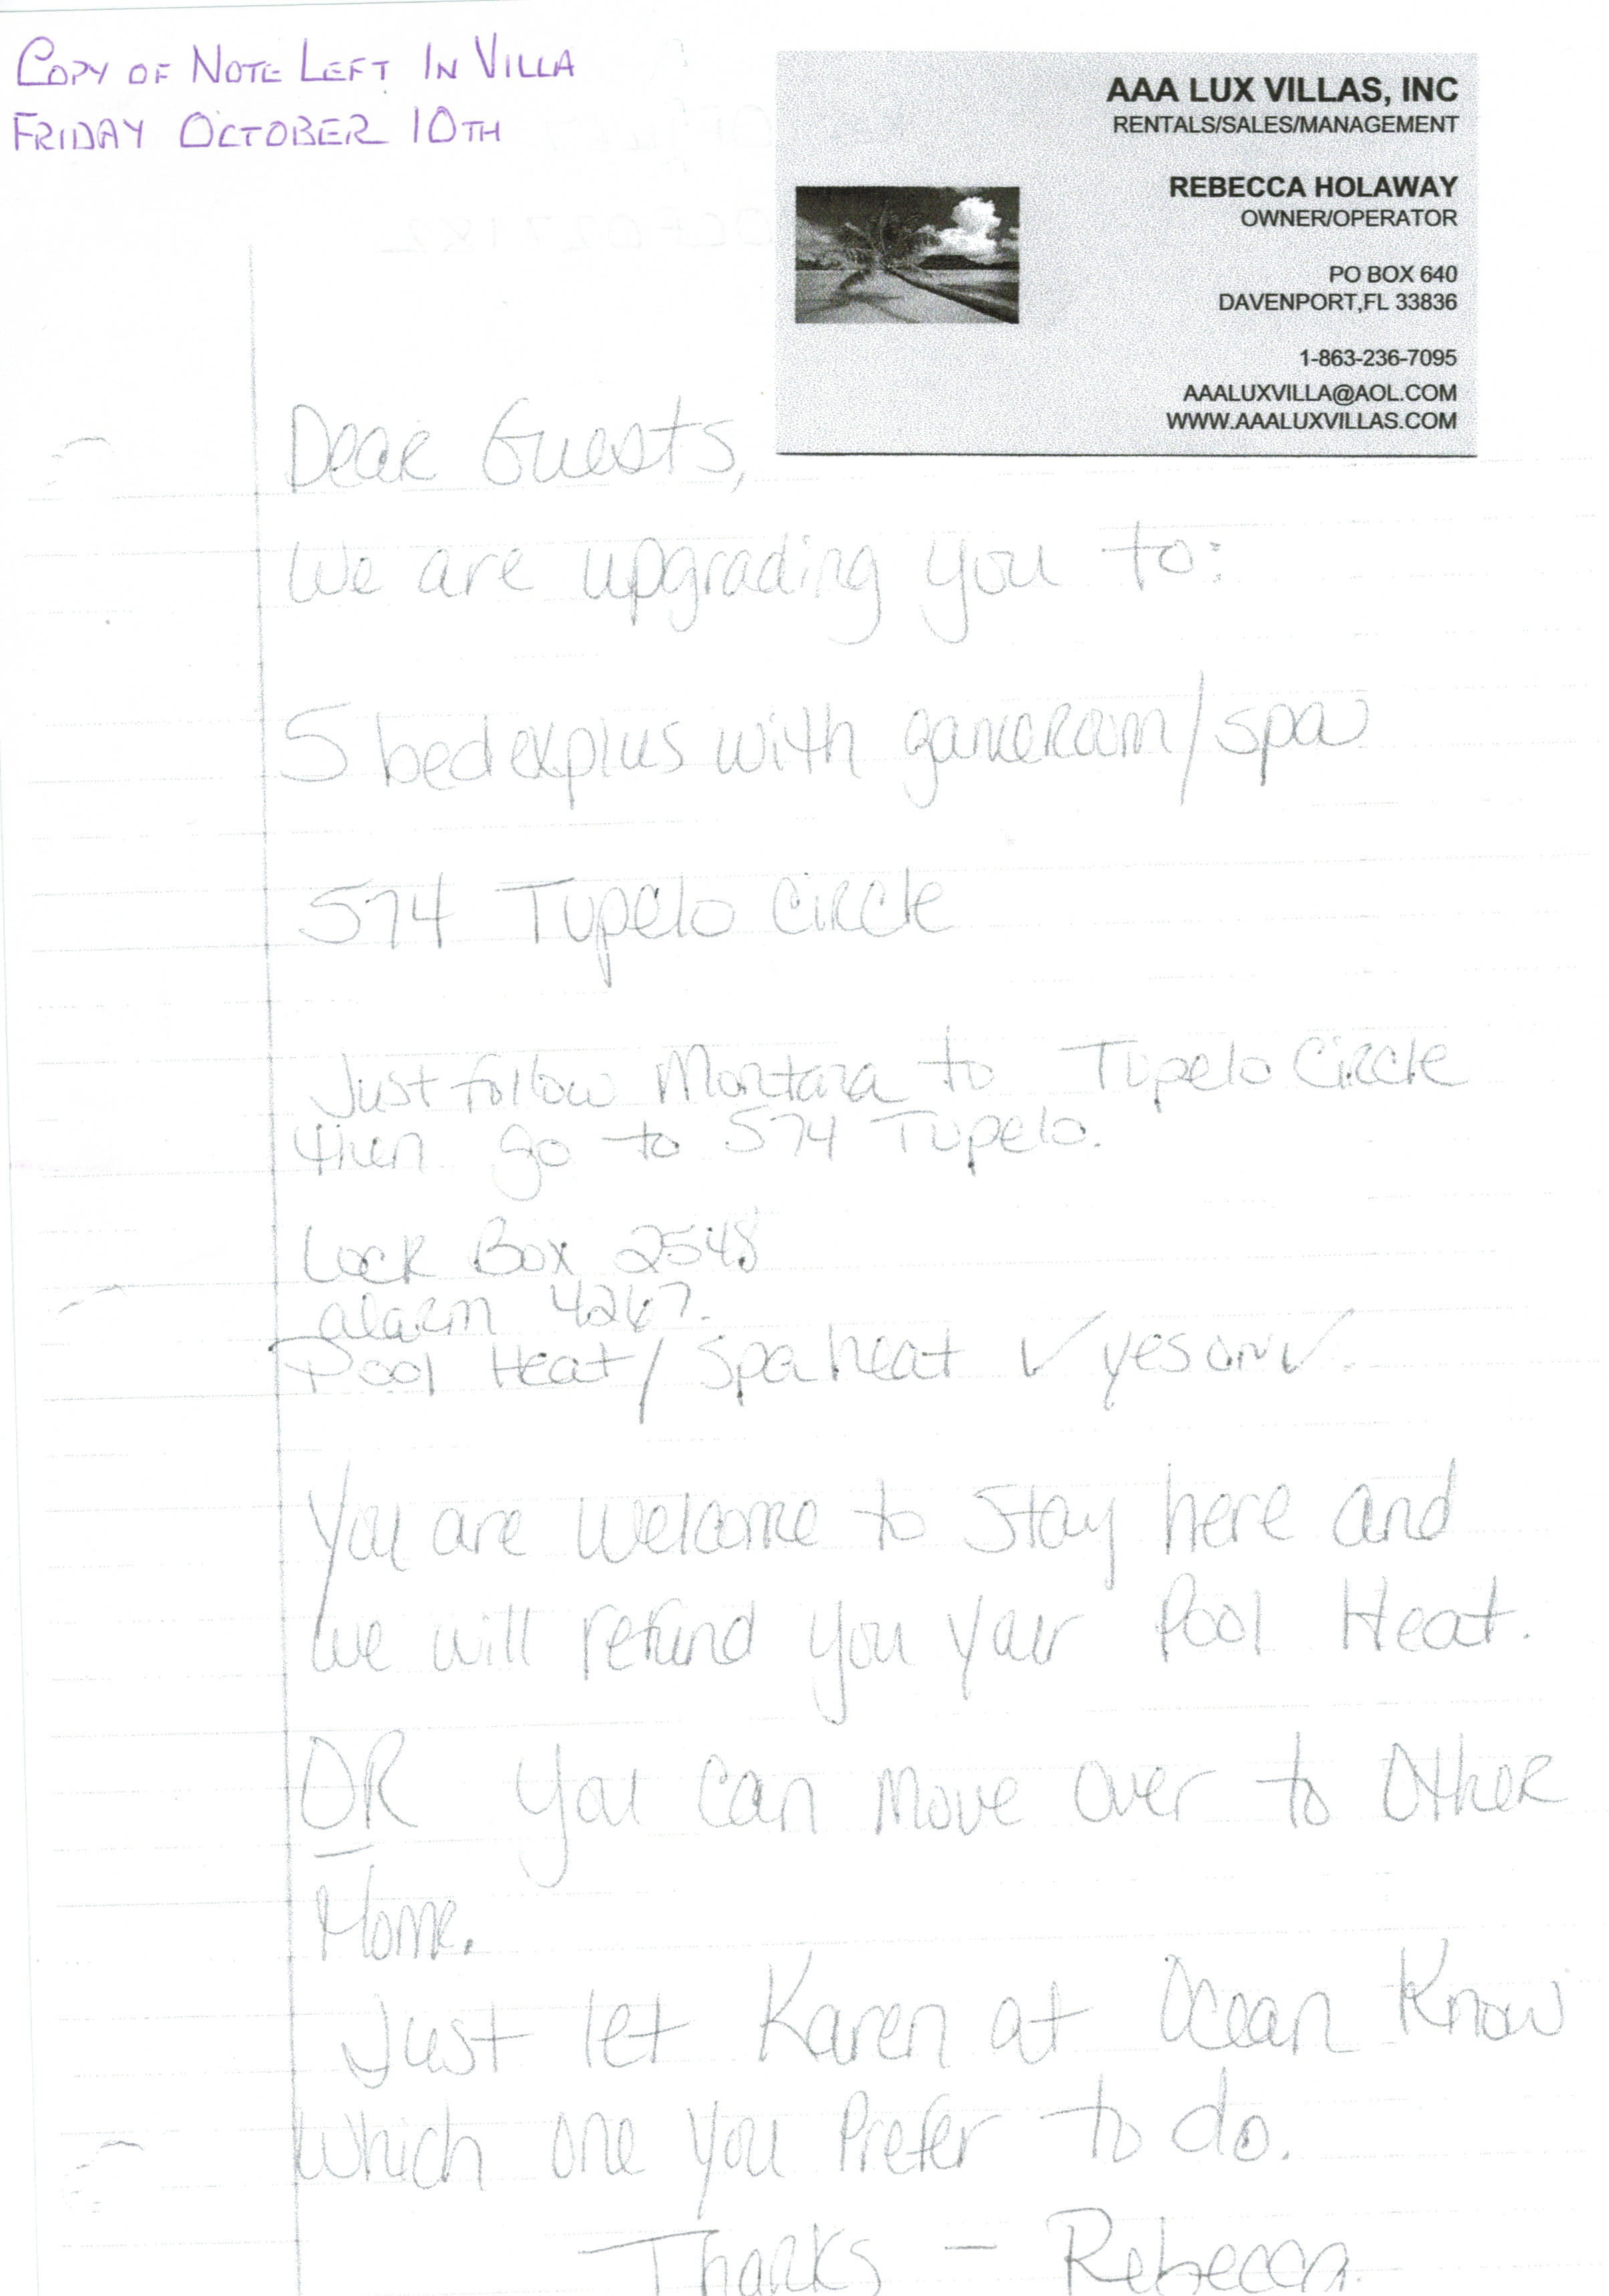 COPY OF NOTE LEFT IN VILLA
FRIDAY OCTOBER 10TH
AAA LUX VILLAS, INC
RENTALS/SALES/MANAGEMENT
REBECCA HOLAWAY
OWNER/OPERATOR
PO BOX 640
DAVENPORT,FL 33836
1-863-236-7095
AAALUXVILLA@AOL.COM
WWW.AAALUXVILLAS.COM
Dear Guests,
We are upgrading you to:
5 bed explus with gameroom/spa
574 Tupelo Circle
Just follow Montara to Tupelo Circle
then go to 574 Tupelo.
Lock Box 2548
alarm 4267.
Pool Heat/Spa heat ✓ yes on ✓.
You are welcome to Stay here and
we will refund you your Pool Heat.
OR you can Move Over to Other
Home.
Just let Karen at Ocean Know
which one you Prefer to do.
Thanks - Rebecca.